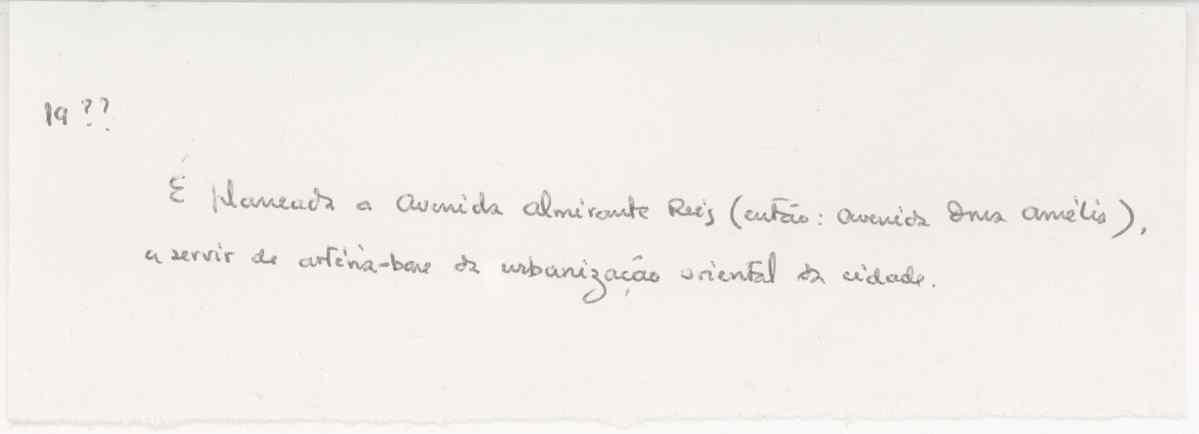 19??
É planeada a avenida almirante Reis (então: avenida Dona amélia),
a servir de artéria-base da urbanização oriental da cidade.